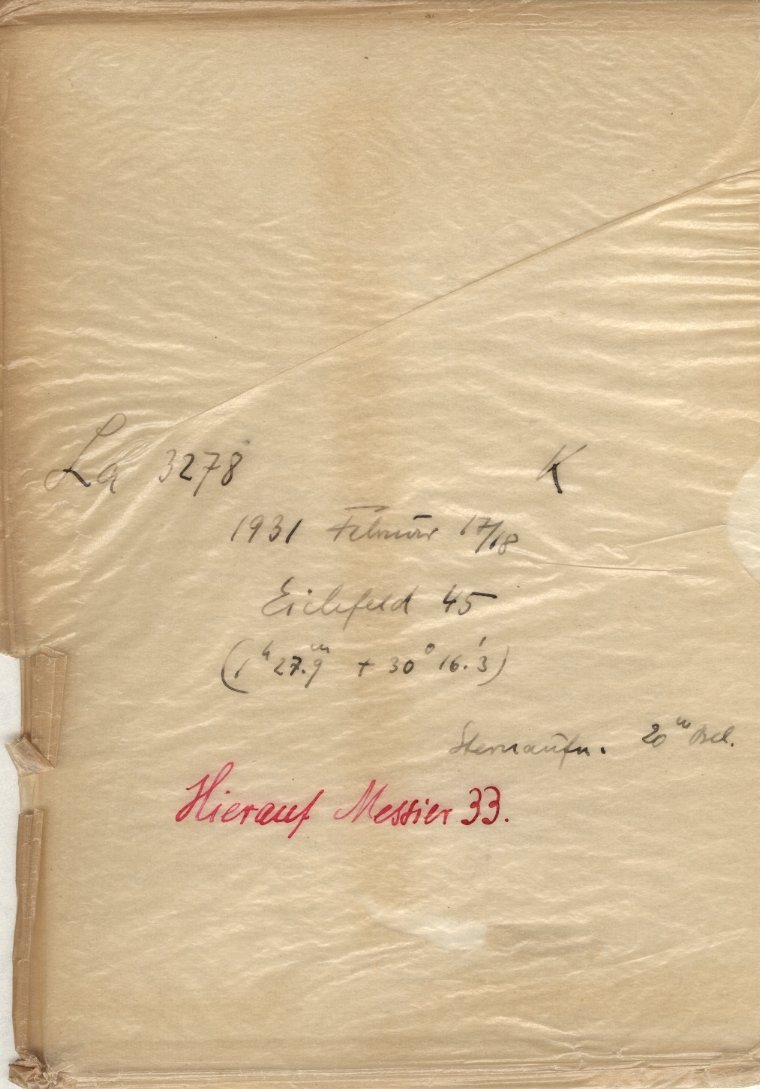 La 3278 K
1931 Februar 17/18
Eichfeld 45
(1ʰ 27.9ᵐ + 30° 16.'3)
Sternaufn. 20ᵐ Bel.
Hierauf Messier 33.